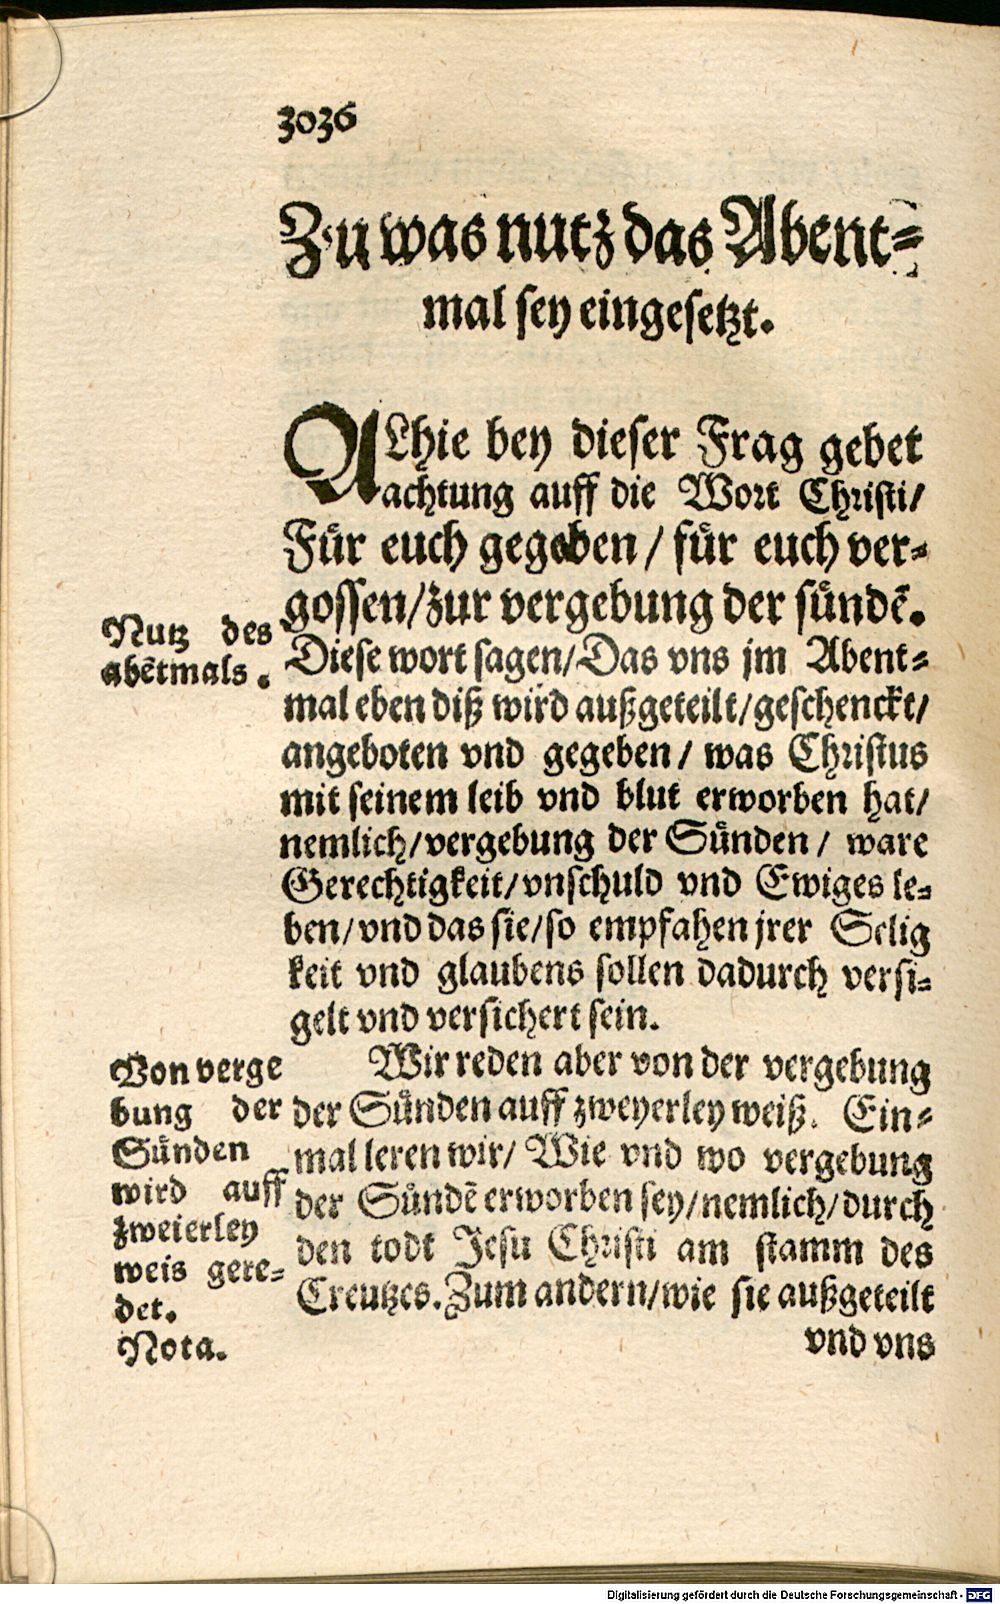 3036
Zu was nutz das Abent⸗
mal sey eingesetzt.
ALhie bey dieser Frag gebet
achtung auff die Wort Christi/
Für euch gegeben / für euch ver⸗
gossen/zur vergebung der sündē.
Nutz des
abētmals.
Diese wort sagen/Das vns jm Abent⸗
mal eben diß wird außgeteilt/geschenckt/
angeboten vnd gegeben/ was Christus
mit seinem leib vnd blut erworben hat/
nemlich/vergebung der Sünden/ ware
Gerechtigkeit/vnschuld vnd Ewiges le⸗
ben/vnd das sie/so empfahen jrer Selig
keit vnd glaubens sollen dadurch versi⸗
gelt vnd versichert sein.
Von verge
bung der
Sünden
wird auff
zweierley
weis gere⸗
det.
Nota.
Wir reden aber von der vergebung
der Sünden auff zweyerley weiß. Ein⸗
mal leren wir/ Wie vnd wo vergebung
der Sündē erworben sey/nemlich/durch
den todt Jesu Christi am stamm des
Creutzes. Zum andern/wie sie außgeteilt
vnd vns
Digitalisierung gefördert durch die Deutsche Forschungsgemeinschaft - DFG